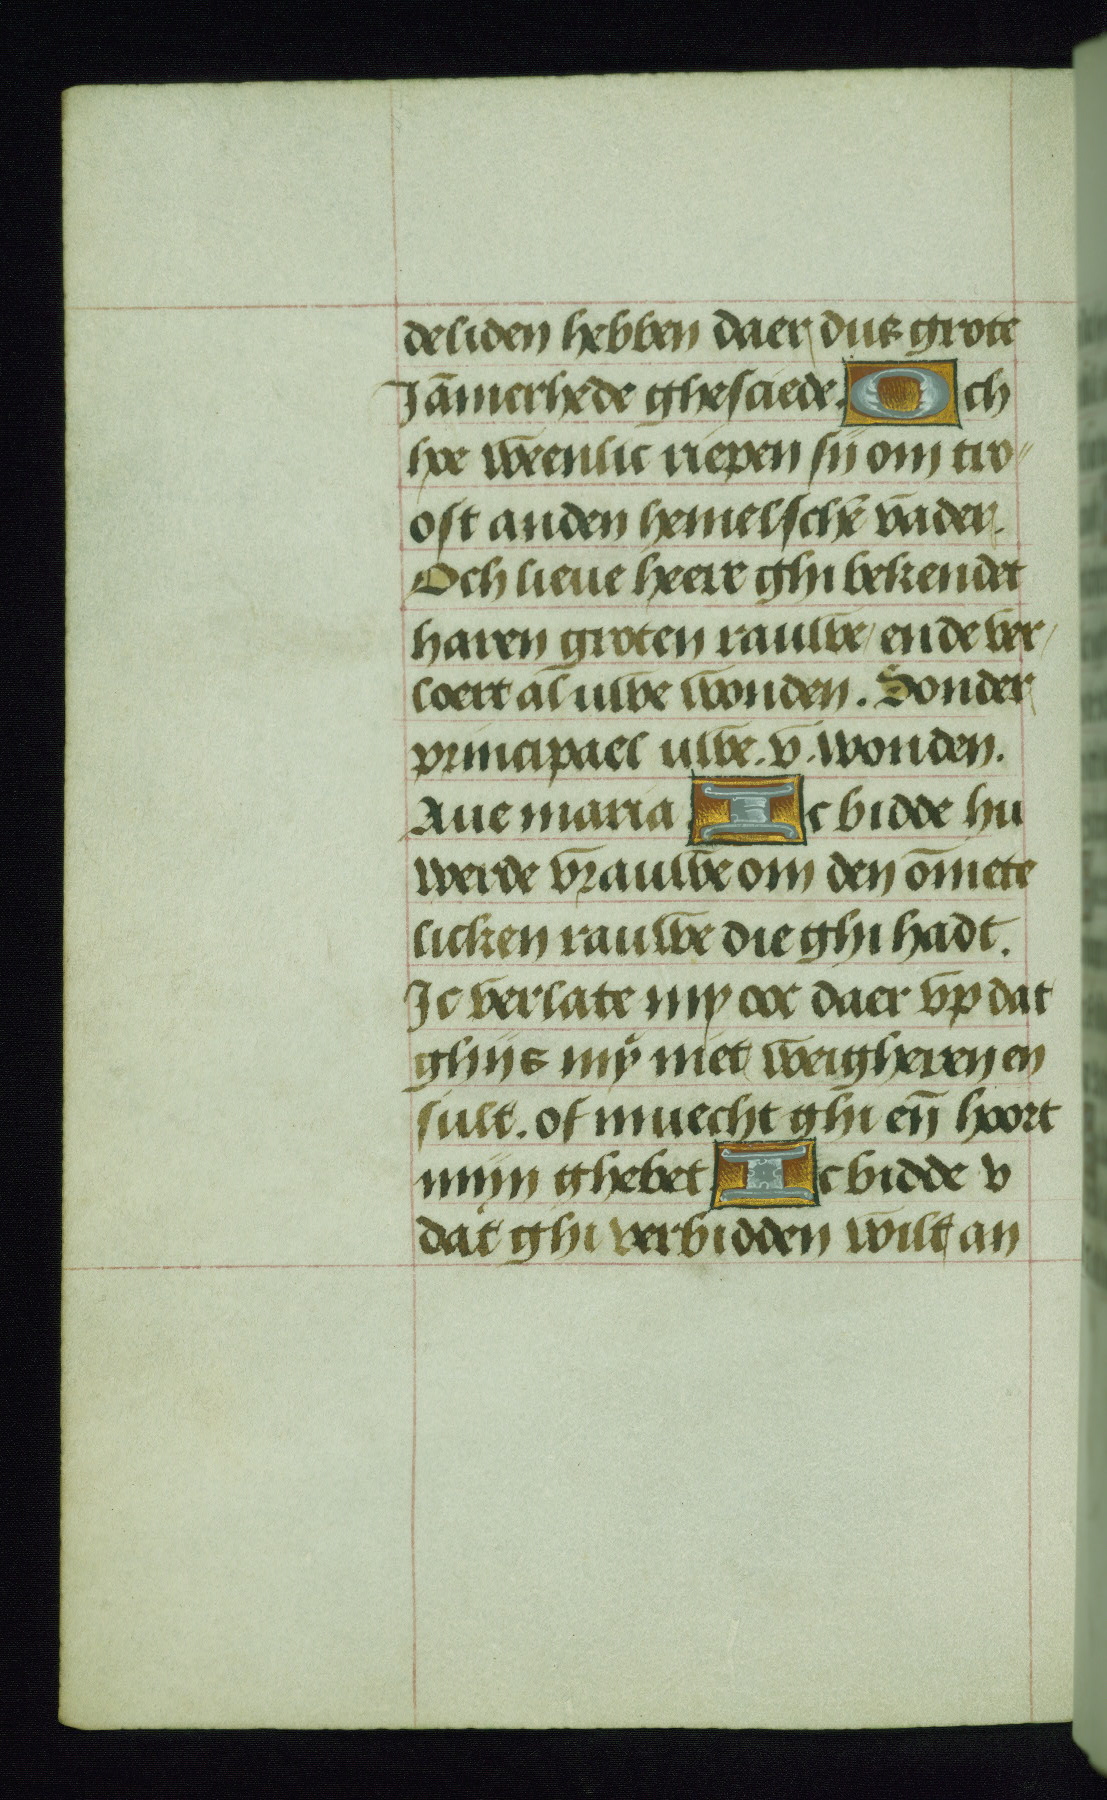 deliden hebben daer dus grote
Jāmerhede ghesciede. Och
hoe weenlic riepen sij om tro//
ost an den hemelschē vader.
Och lieue heere ghi bekendet
haren groten rauwe / ende ver/
loert al uwe wonden. Sonder
principael uwe .v. wonden.
Aue maria Ic bidde hu
werde vrauwe om den ōmete
licken rauwe die ghi hadt.
Ic verlate my ooc daer vp dat
ghijs mij niet weigheren en
sult. of muecht ghi eñ hoort
mijn ghebet Ic bidde v
dat ghi verbidden wilt an